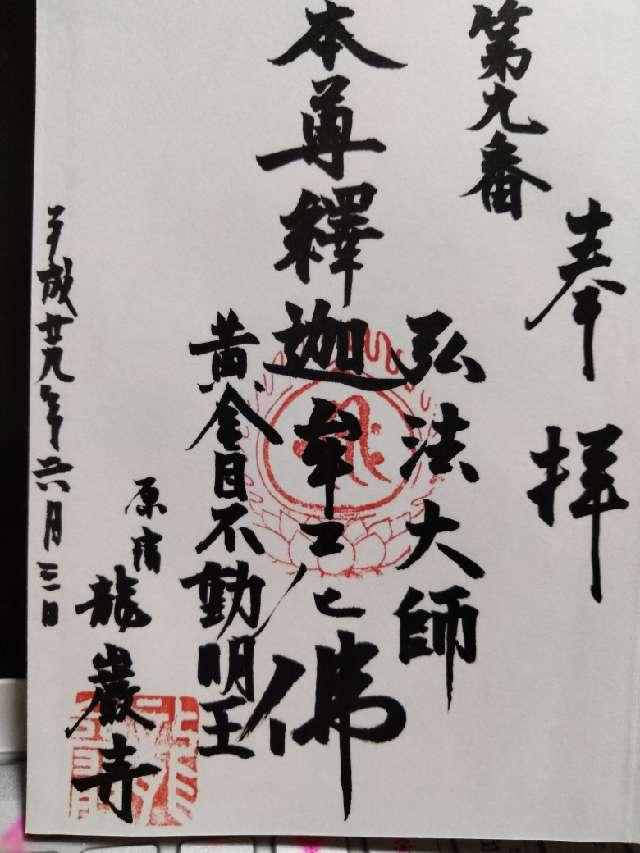 奉拝
第九番
弘法大師
本尊釋迦牟尼佛
黄金目不動明王
原宿
龍巖寺
平成廿九年六月三日